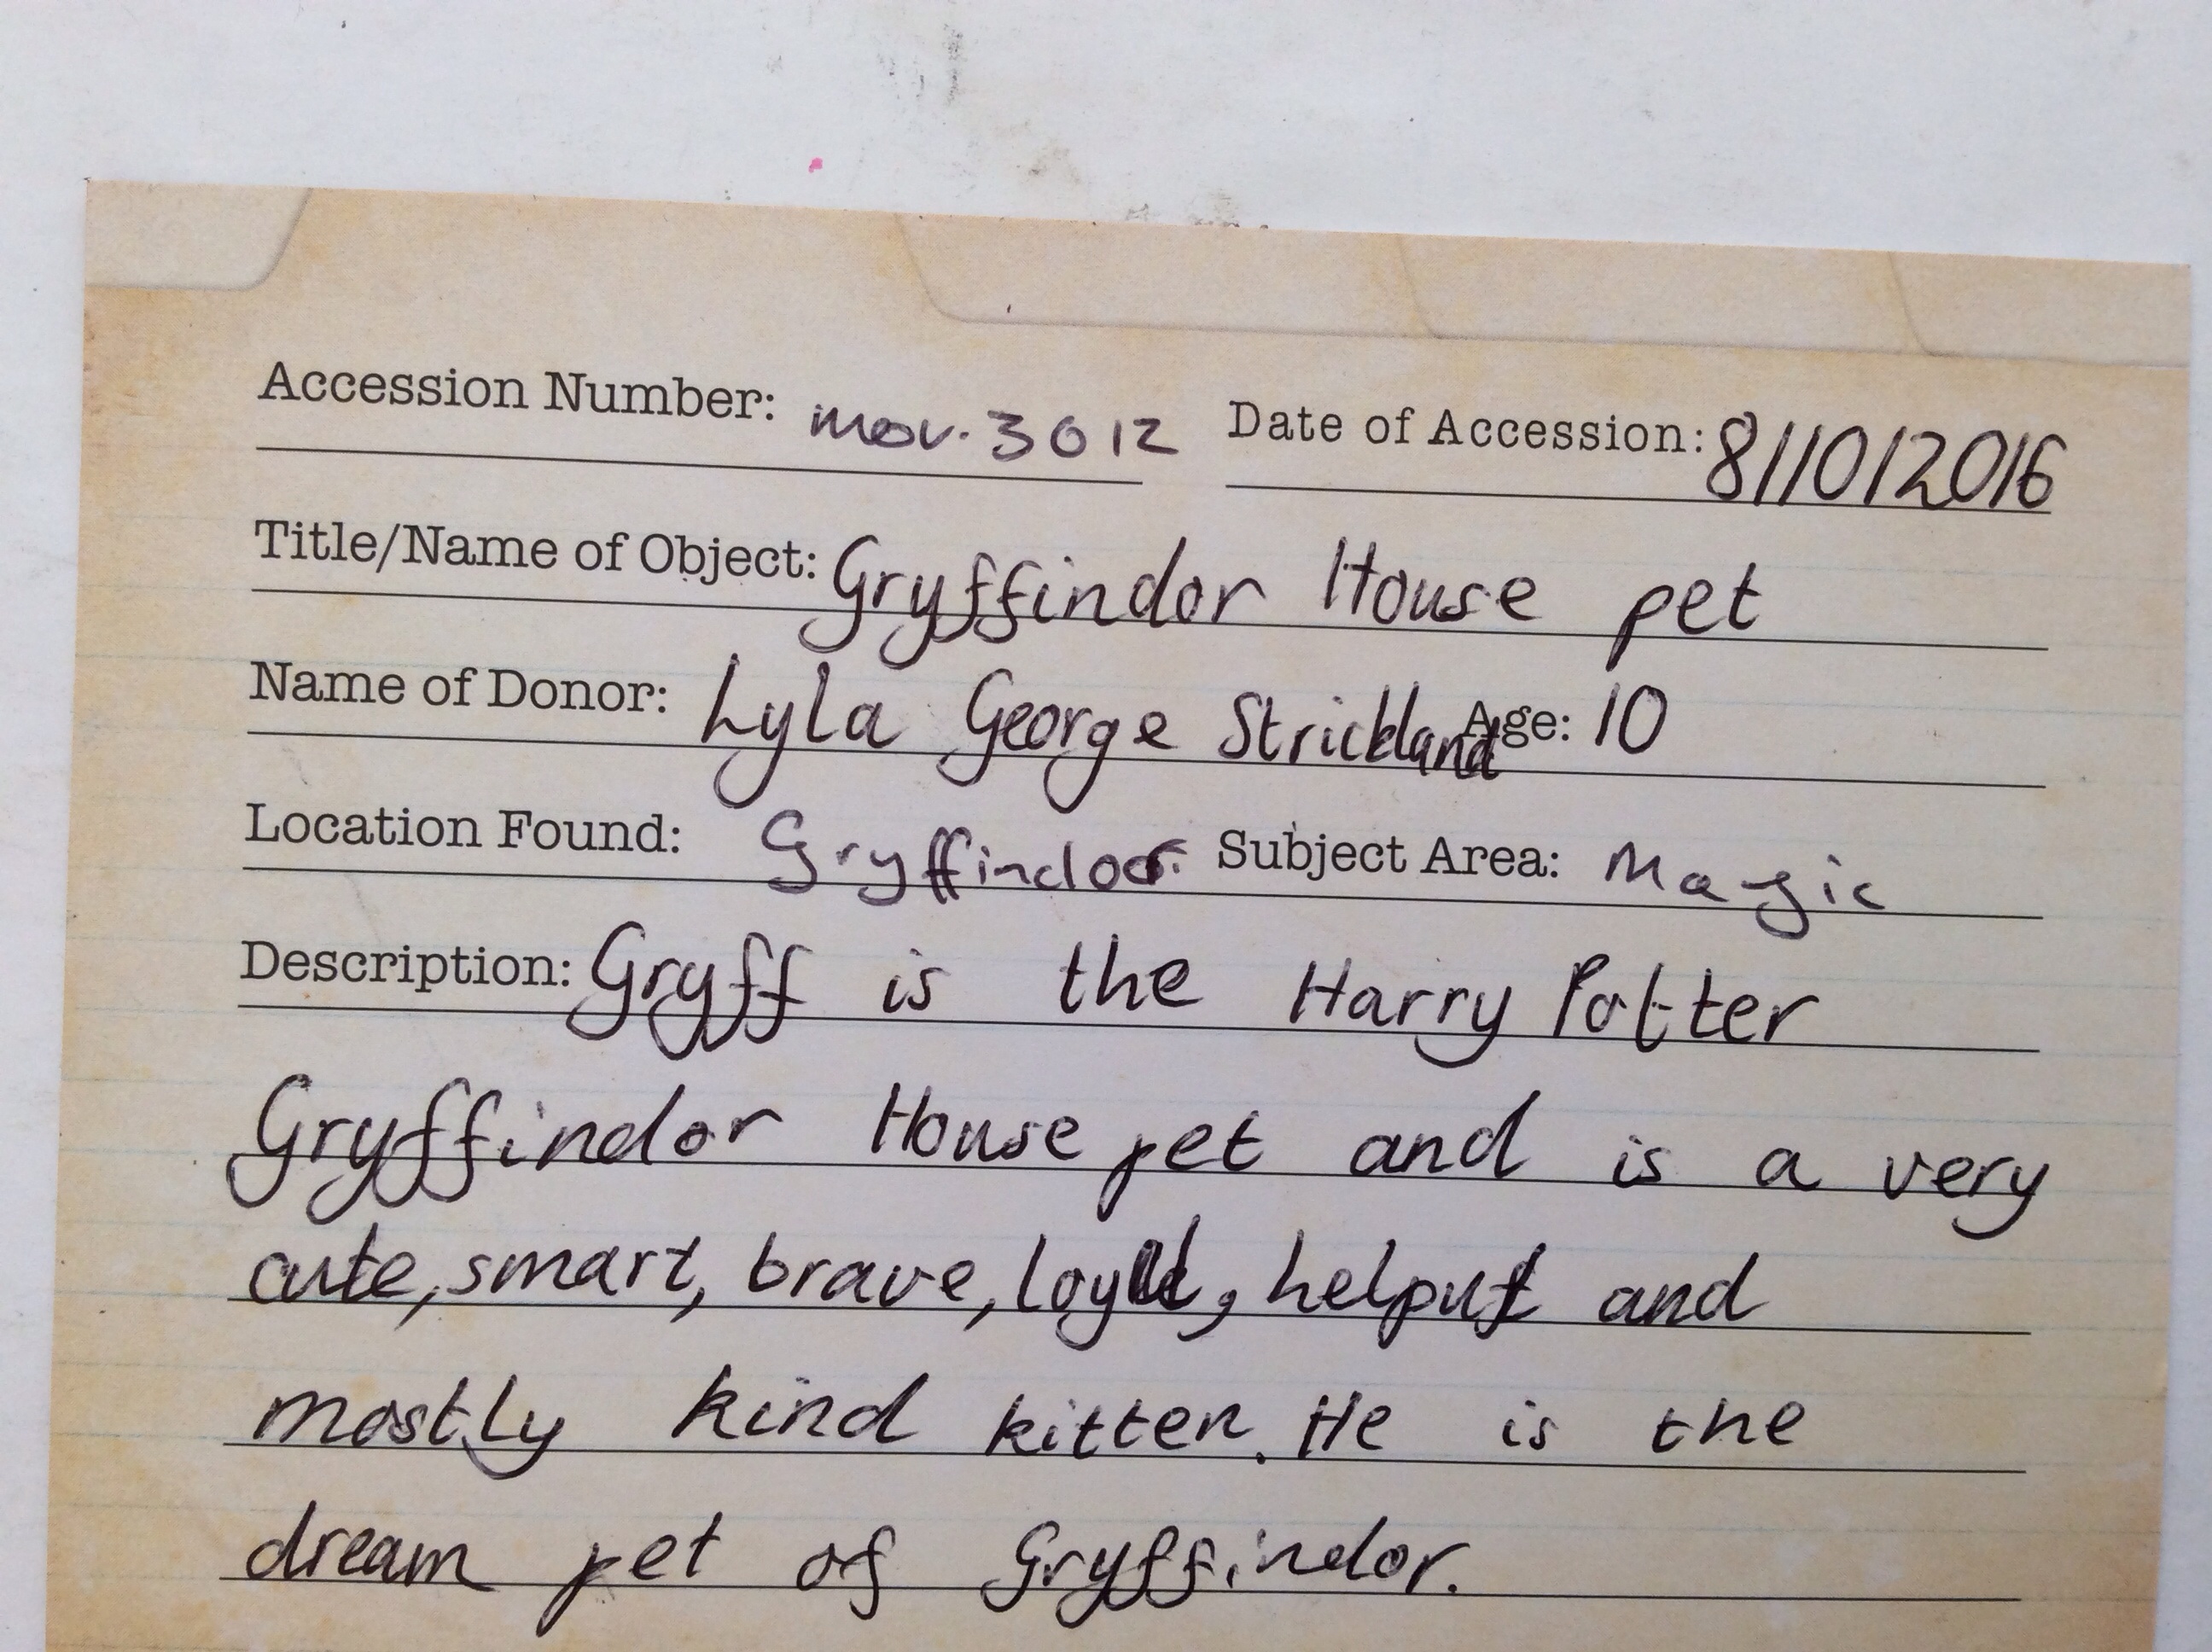 Accession Number: mov. 3012 Date of Accession: 8/10/2016
Title/Name of Object: Gryffindor House pet
Name of Donor: Lyla George Strickland Age: 10
Location Found: Gryffindor. Subject Area: Magic
Description: Gryff is the Harry Potter
Gryffindor House pet and is a very
cute, smart, brave, loyal, helpuf and
mostly kind kitten. He is the
dream pet of Gryffindor.